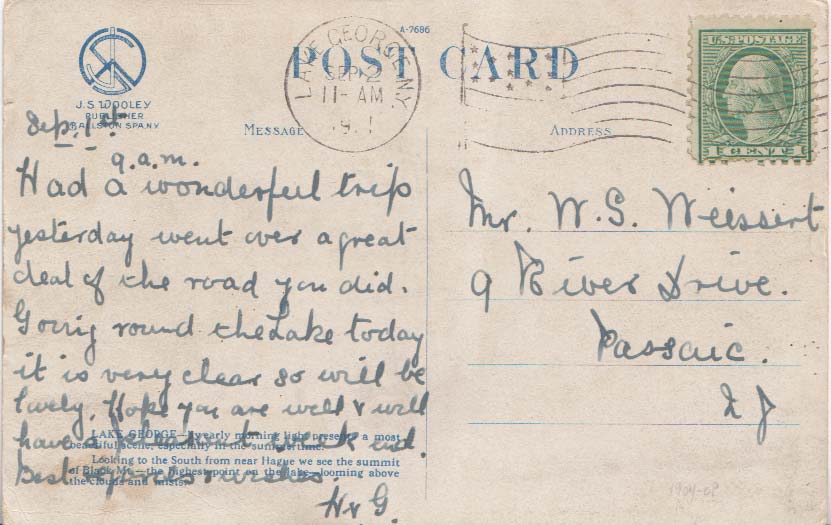 A-7686
POST CARD
J.S. WOOLEY
PUBLISHER
BALLSTON SPA N.Y.
LAKE GEORGE N.Y.
SEP 2
11-AM
U.S. POSTAGE
1 CENT 1
MESSAGE
ADDRESS
Sep. 1st
9.a.m.
Had a wonderful trip
yesterday went over a great
deal of the road you did.
Going round the Lake today
it is very clear so will be
lovely. Hope you are well & will
have a pleasant week end.
Best of good wishes.
H & G.
LAKE GEORGE—Early morning light presents a most
beautiful scene, especially in the summertime.
Looking to the South from near Hague we see the summit
of Black Mt.—the highest point on the lake—looming above
the clouds and mists.
Mr. W. S. Weissert
9 River Drive.
Passaic.
N J